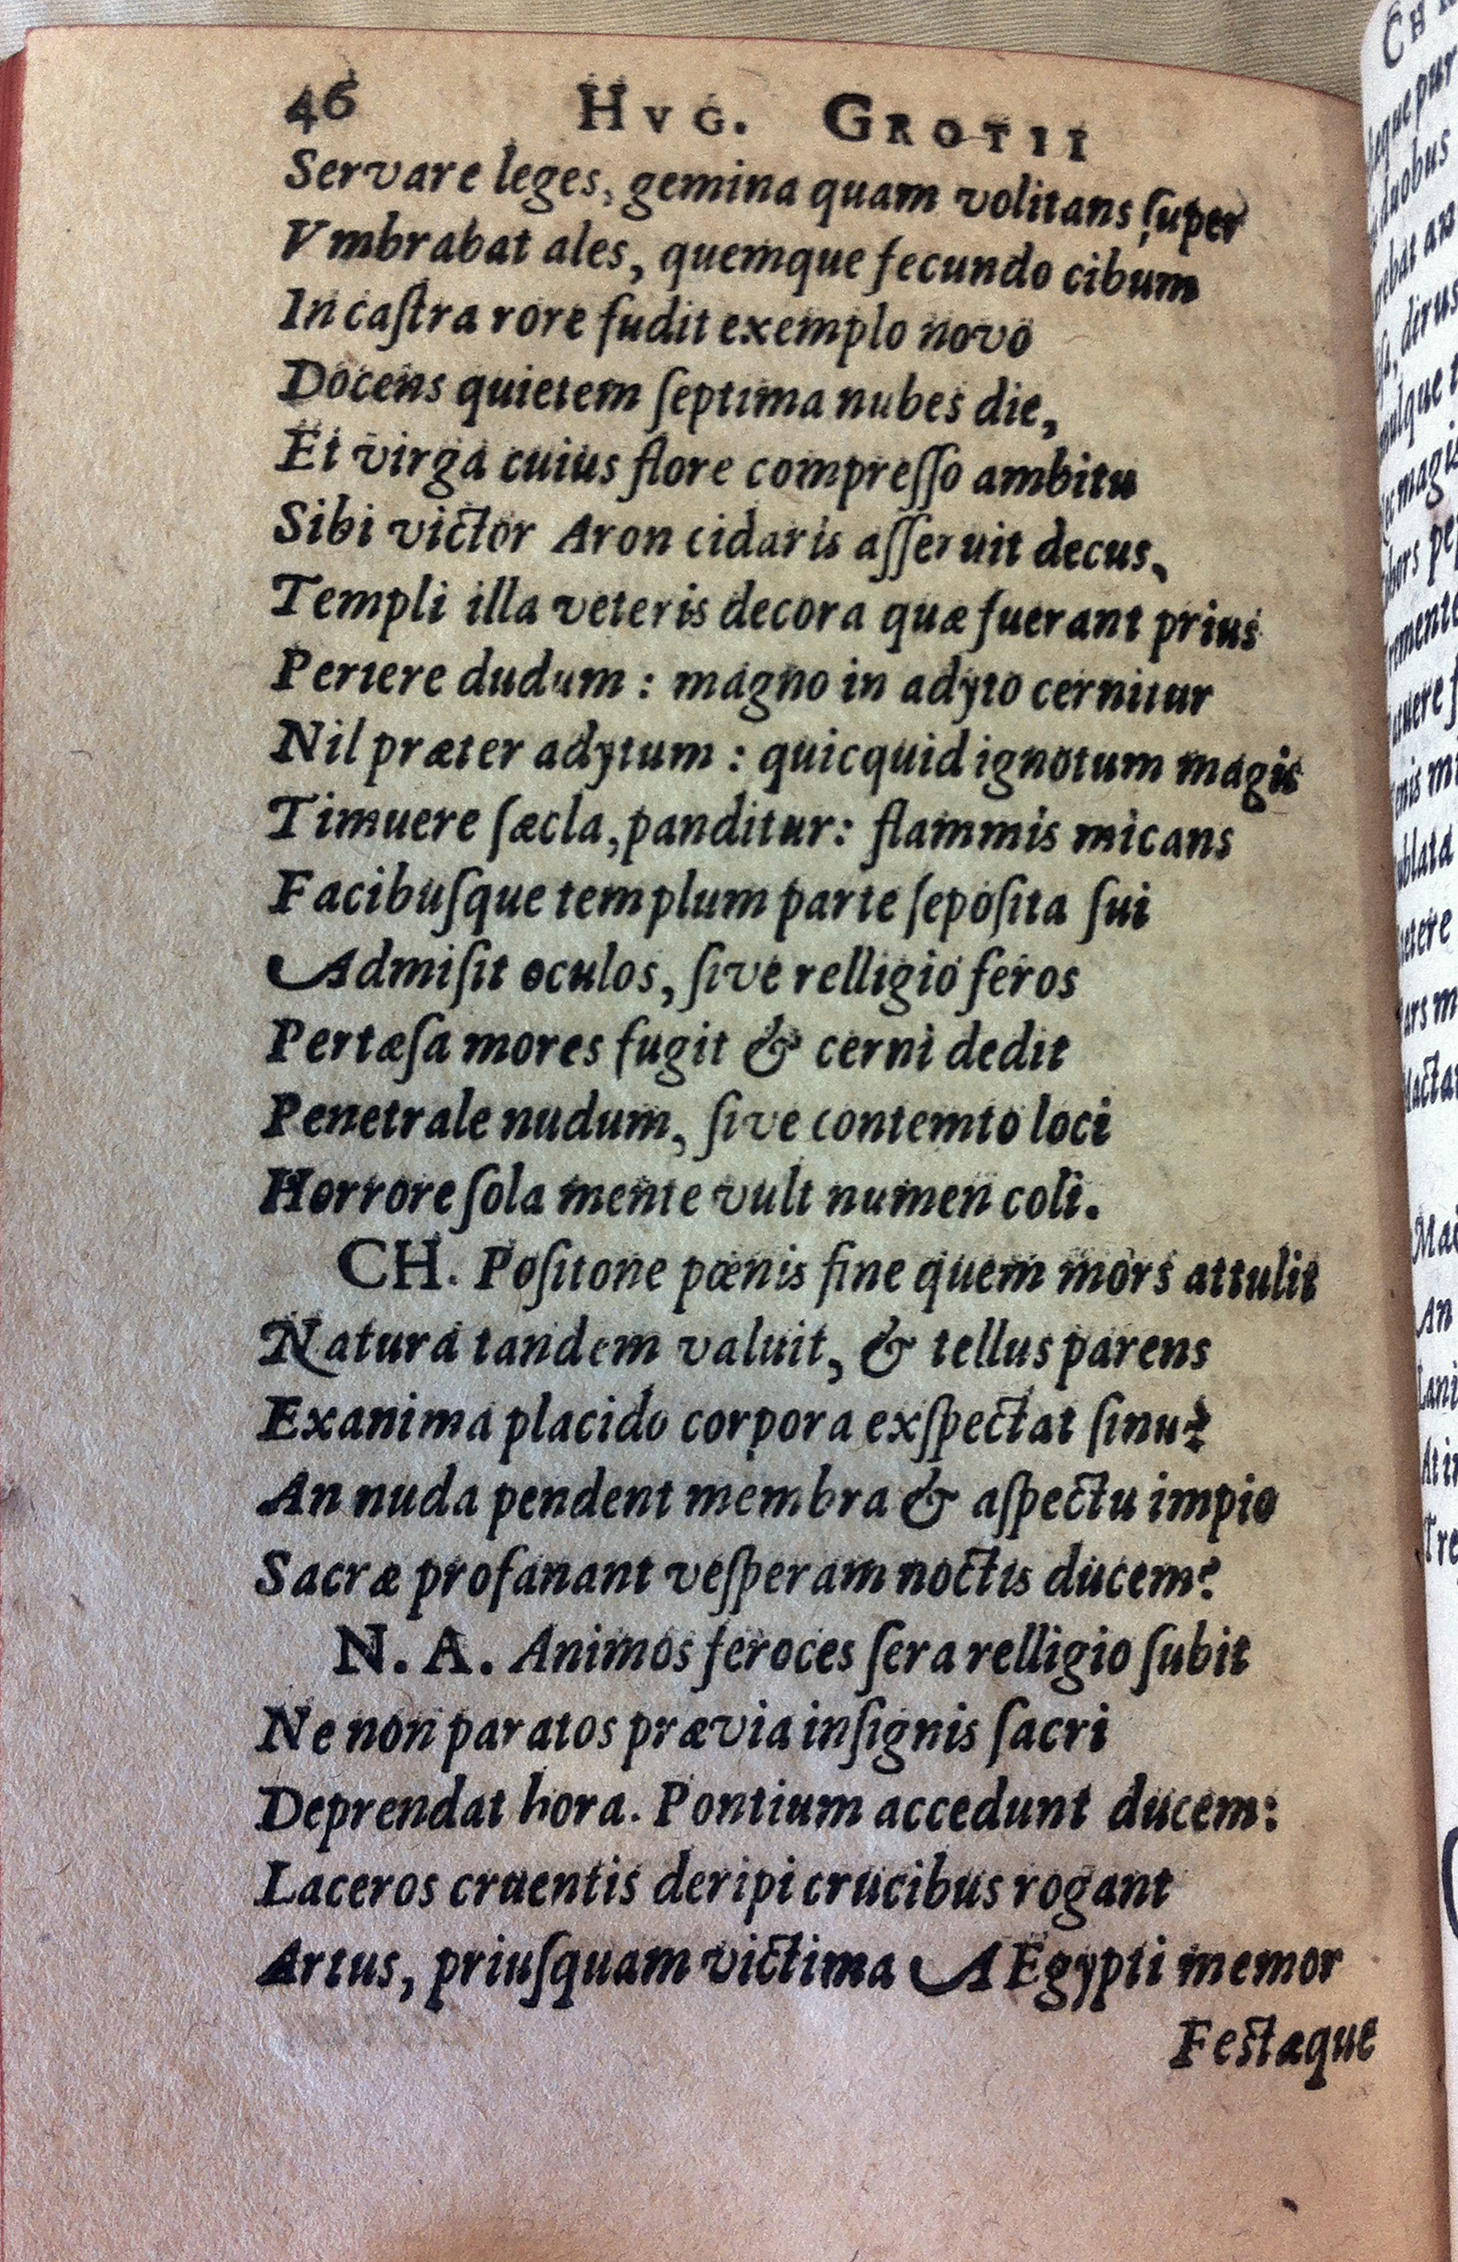 46 HVG. GROTII
Servare leges, gemina quam volitans ſuper
Vmbrabat ales, quemque fecundo cibum
In caſtra rore fudit exemplo novo
Docens quietem ſeptima nubes die,
Et virga cuius flore compreſſo ambitu
Sibi victor Aron cidaris aſſeruit decus,
Templi illa veteris decora quæ fuerant prius
Periere dudum : magno in adyto cernitur
Nil præter adytum : quicquid ignotum magis
Timuere ſæcla, panditur: flammis micans
Facibuſque templum parte ſepoſita ſui
Admiſit oculos, ſive relligio feros
Pertæſa mores fugit & cerni dedit
Penetrale nudum, ſive contemto loci
Horrore ſola mente vult numen coli.
CH. Poſitone pœnis fine quem mors attulit
Natura tandem valuit, & tellus parens
Exanima placido corpora exſpectat ſinu?
An nuda pendent membra & aſpectu impio
Sacræ profanant veſperam noctis ducem?
N. A. Animos feroces ſera relligio ſubit
Ne non paratos prævia inſignis ſacri
Deprendat hora. Pontium accedunt ducem:
Laceros cruentis deripi crucibus rogant
Artus, priuſquam victima AEgypti memor
Feſtæque